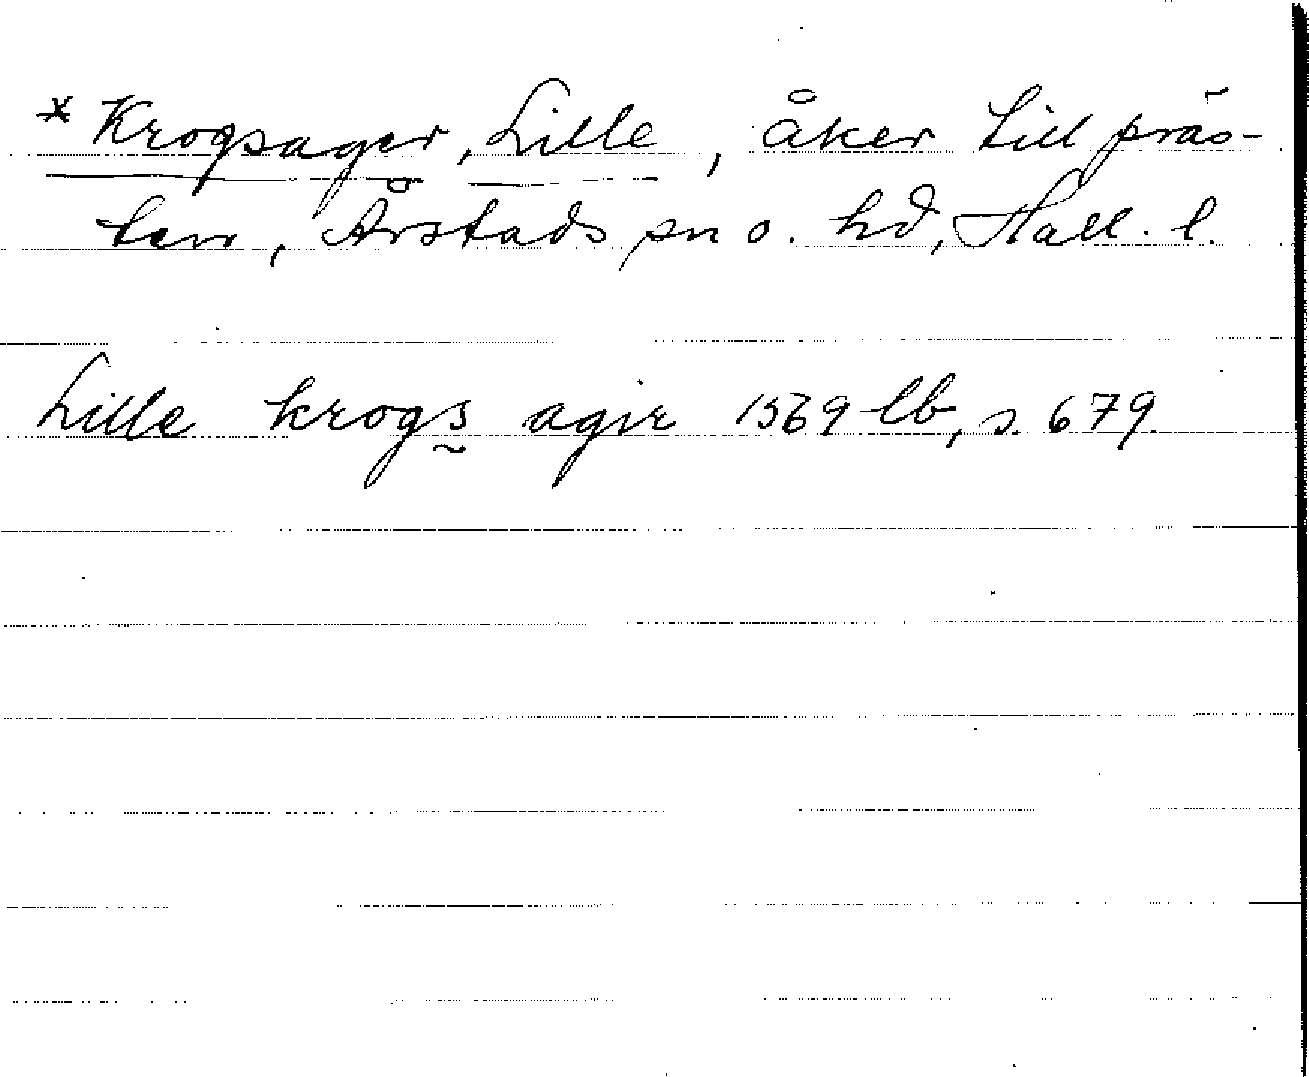 * Krogsager, Lille, åker till präs-
ten, Årstads sn o. hd, Hall. l.
Lille krogs agir 1569 lb, s. 679.